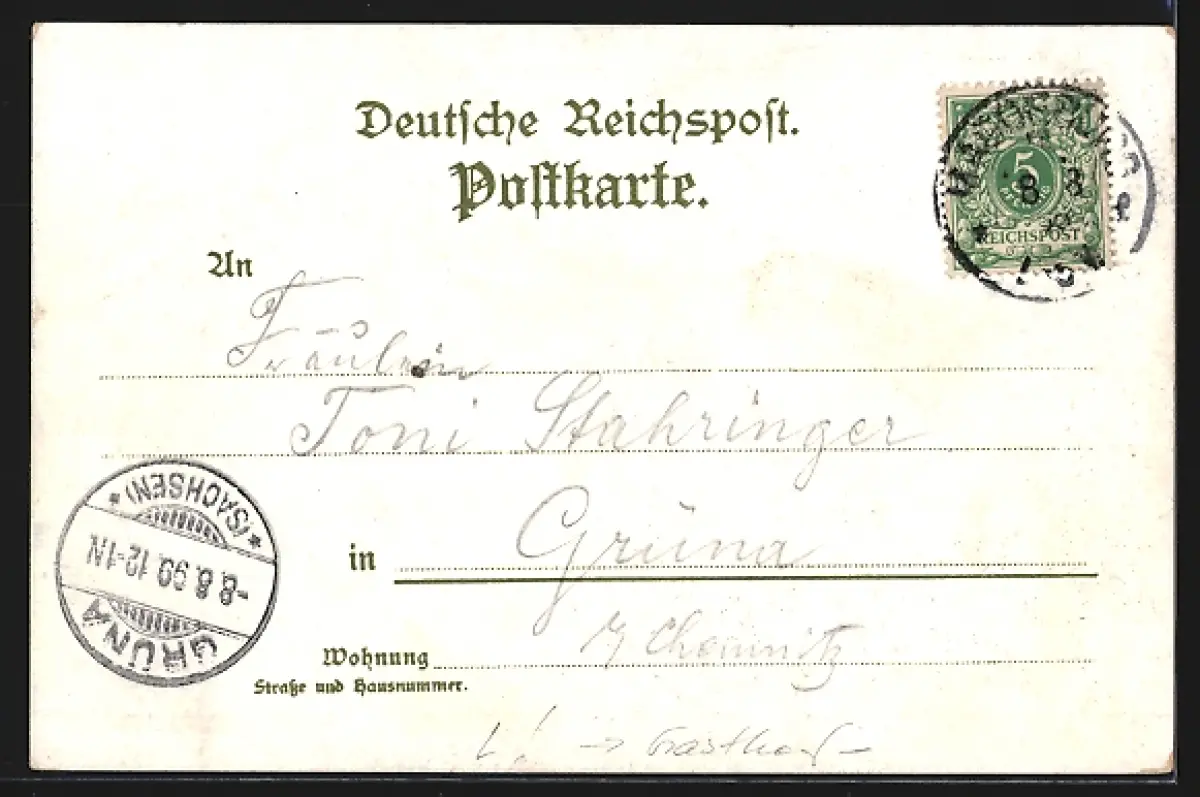 Deutsche Reichspost.
Postkarte.
5
REICHSPOST
8 8
An
Fräulein
Toni Stahringer
in Grüna
Chemnitz
Wohnung
Straße und Hausnummer.
GRÜNA
-8.8.99.12-1N.
*(SACHSEN)*
Gasthof